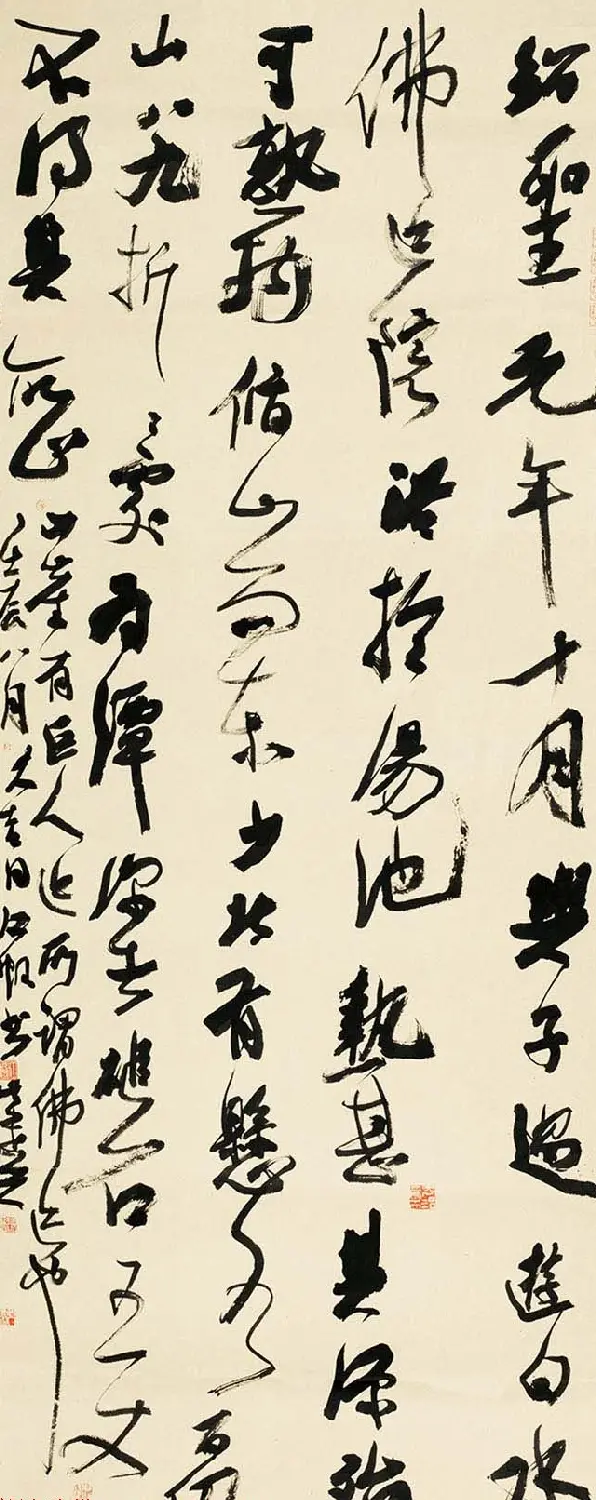 紹聖元年十月與子過遊白水
佛迹院浴於湯池熱甚其源殆
可熟物循山而東少北有懸水百仞
山八九折々處為潭深者磓石五丈
不得其所止
山崖有巨人迹所謂佛迹也
壬辰八月大吉日江帆书